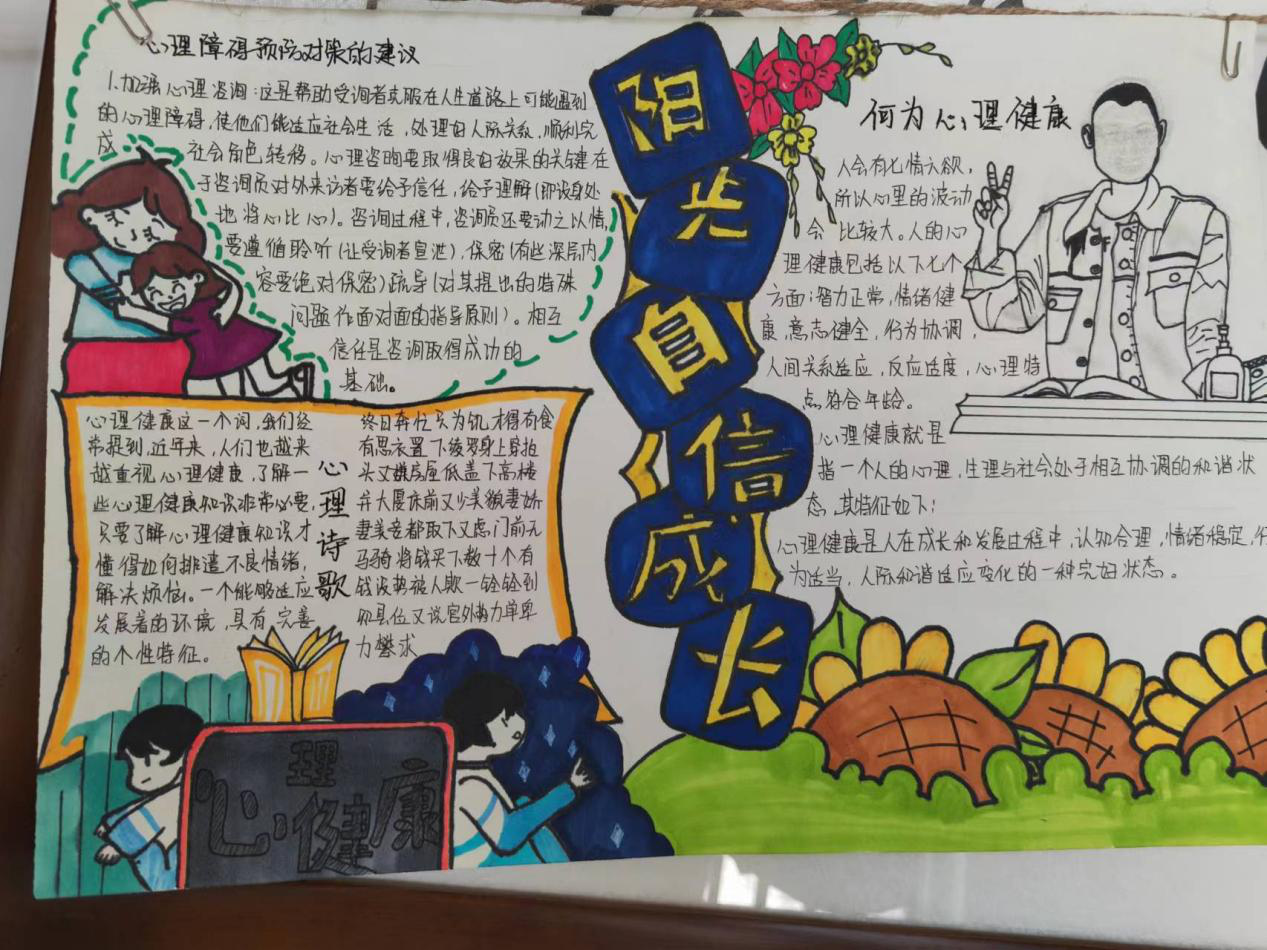 心理障碍预防对策的建议
1.加强心理咨询:这是帮助受询者克服在人生道路上可能遇到
的心理障碍,使他们能适应社会生活,处理好人际关系,顺利完
成 社会角色转移。心理咨询要取得良好效果的关键在
于咨询员对外来访者要给予信任,给予理解(即设身处
地将心比心)。咨询过程中,咨询员还要动之以情,
要遵循聆听(让受询者宣泄),保密(有些深层内
容要绝对保密)疏导(对其提出的特殊
问题作面对面的指导原则)。相互
信任是咨询取得成功的
基础。
心理健康这一个词,我们经
常提到,近年来,人们也越来
越重视心理健康,了解一
些心理健康知识非常必要,
只要了解心理健康知识才
懂得如何排遣不良情绪,
解决烦恼。一个能够适应
发展着的环境,具有完善
的个性特征。
心理诗歌
终日奔忙只为饥才得有食
有思衣置下绫罗身上穿抬
头又嫌房屋低盖下高楼
并大厦床前又少美貌妻娇
妻美妾都取下又虑门前无
马骑将钱买下数十个有
钱没势被人欺一铨铨到
知县位又说官外势力单卑
力攀求
心理健康
阳光自信成长
何为心理健康
人会有七情六欲,
所以心里的波动
会比较大。人的心
理健康包括以下七个
方面:智力正常,情绪健
康,意志健全,行为协调,
人间关系适应,反应适度,心理特
点符合年龄。
心理健康就是
指一个人的心理,生理与社会处于相互协调的和谐状
态,其特征如下:
心理健康是人在成长和发展过程中,认知合理,情绪稳定,行
为适当,人际和谐适应变化的一种完好状态。